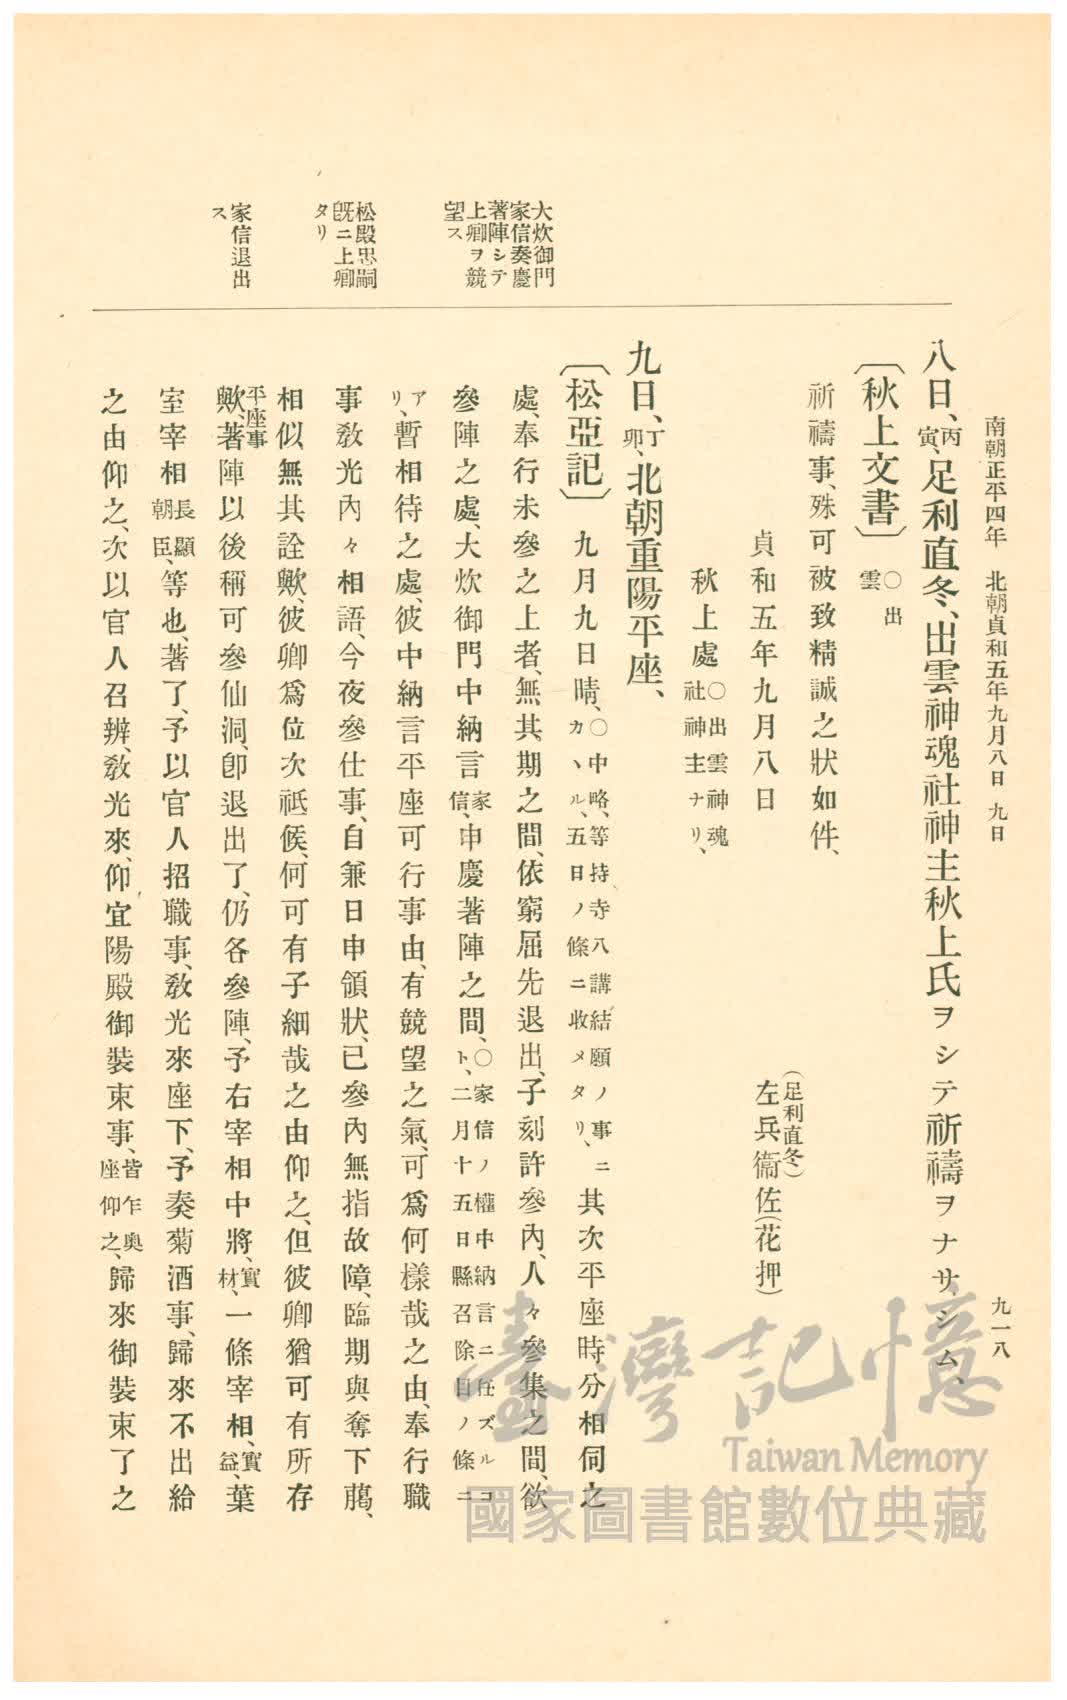 南朝正平四年　北朝貞和五年九月八日　九日
九一八
八日、丙寅、足利直冬、出雲神魂社神主秋上氏ヲシテ祈禱ヲナサシム、
〔秋上文書〕〇出雲
祈禱事、殊可被致精誠之狀如件、
貞和五年九月八日
(足利直冬)
左兵衞佐(花押)
秋上處〇出雲神魂社神主ナリ、
九日、丁卯、北朝重陽平座、
〔松亞記〕九月九日晴、〇中略、等持寺八講結願ノ事ニカヽル、五日ノ條ニ收メタリ、其次平座時分相伺之
處、奉行未參之上者、無其期之間、依窮屈先退出、子刻許參內、人々參集之間、欲
大炊御門家信奏慶著陣シテ上卿ヲ競望ス
參陣之處、大炊御門中納言家信、申慶著陣之間、〇家信ノ權中納言ニ任ズルコト、二月十五日縣召除目ノ條ニ
アリ、暫相待之處、彼中納言平座可行事由、有競望之氣、可爲何樣哉之由、奉行職
松殿忠嗣旣ニ上卿タリ
事敎光內々相語、今夜參仕事、自兼日申領狀、已參內無指故障、臨期與奪下﨟、
相似無其詮歟、彼卿爲位次祗候、何可有子細哉之由仰之、但彼卿猶可有所存
家信退出ス
平座事
歟、著陣以後稱可參仙洞、卽退出了、仍各參陣、予右宰相中將、實材、一條宰相、實益、葉
室宰相長顯朝臣、等也、著了、予以官人招職事、敎光來座下、予奏菊酒事、歸來不出給
之由仰之、次以官人召辨、敎光來、仰宜陽殿御裝束事、皆乍奧座仰之、歸來御裝束了之
臺灣記憶
Taiwan Memory
國家圖書館數位典藏